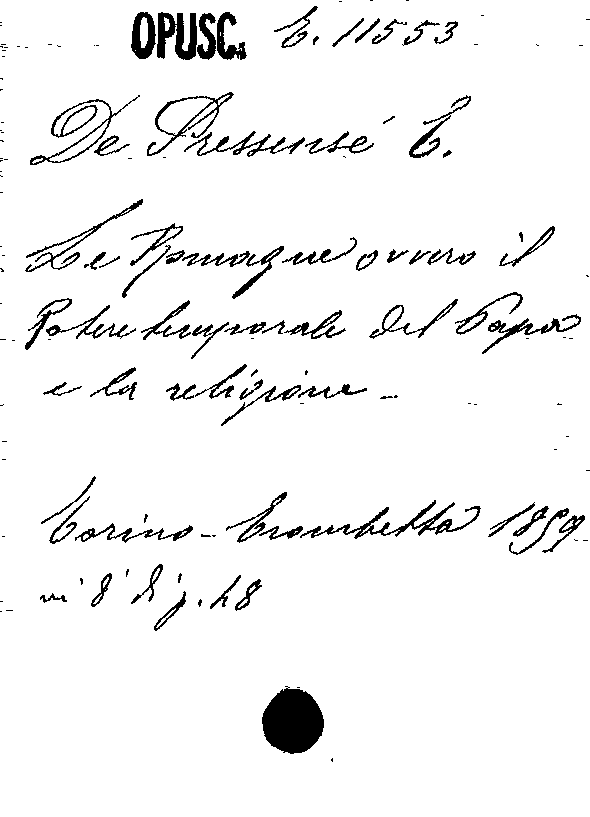 OPUSC. E. 11553
De Pressensé E.
Le Romagne ovvero il
Potere temporale del Papa
e la religione -
Torino - Trombetta 1859
in 8° di p. 48